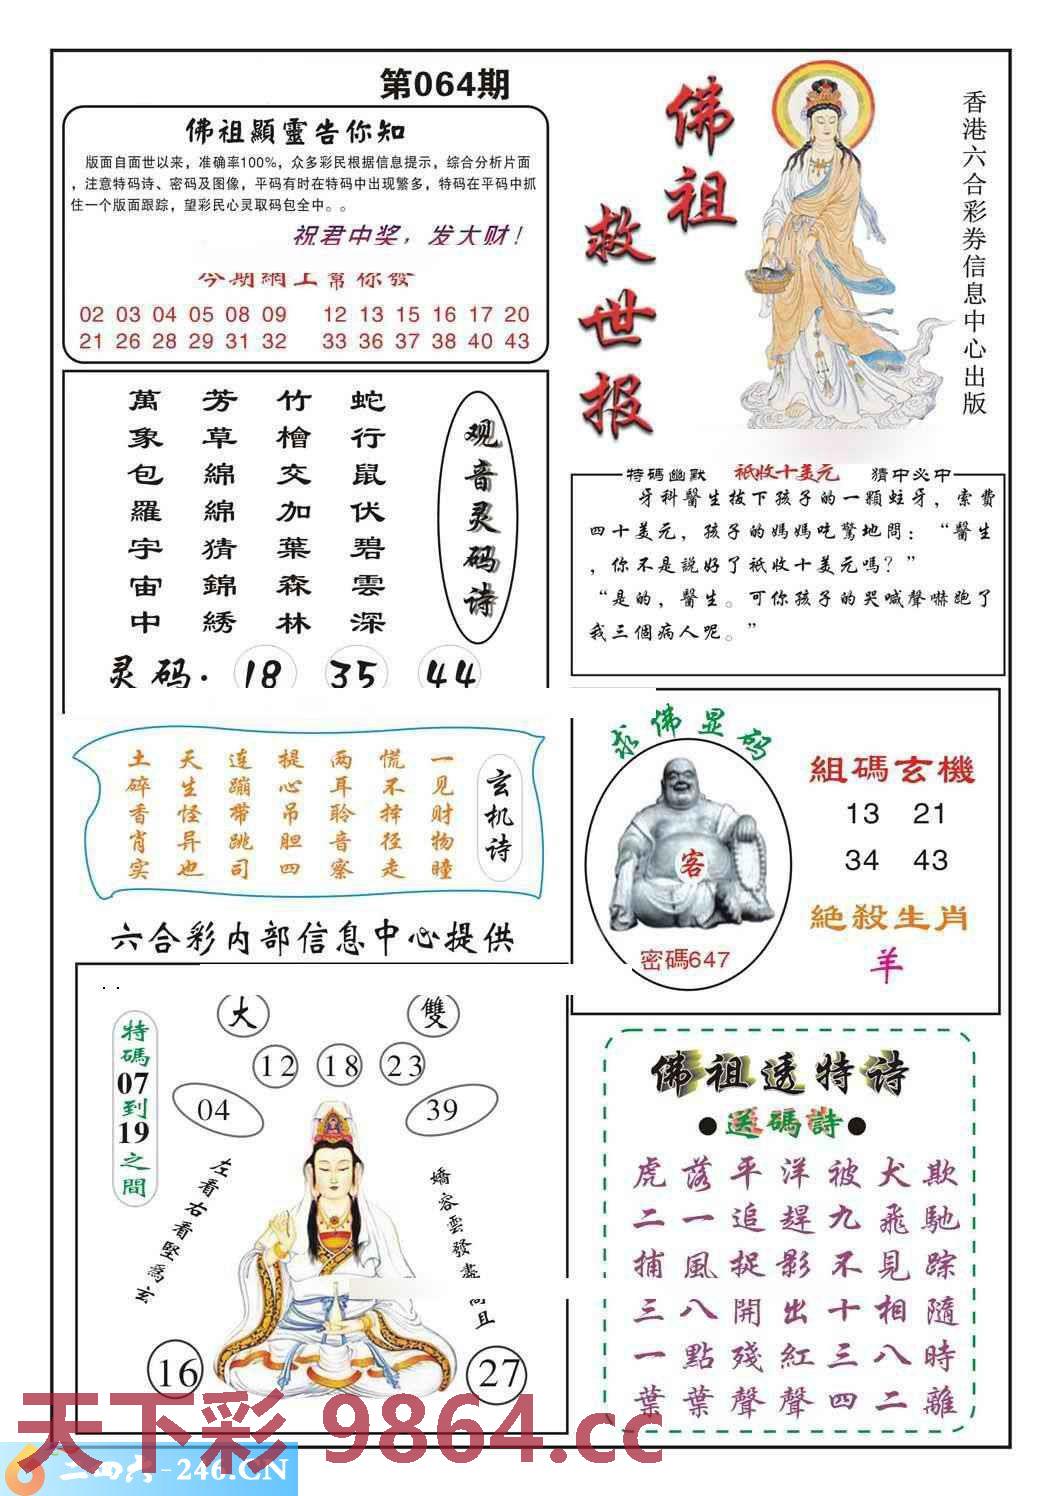 第064期
佛祖顯靈告你知
版面自面世以来，准确率100%，众多彩民根据信息提示，综合分析片面
，注意特码诗、密码及图像，平码有时在特码中出现繁多，特码在平码中抓
住一个版面跟踪，望彩民心灵取码包全中。。
祝君中奖，发大财！
今期網上幫你發
02 03 04 05 08 09 12 13 15 16 17 20
21 26 28 29 31 32 33 36 37 38 40 43
佛祖
救世报
香港六合彩券信息中心出版
观音灵码诗
蛇行鼠伏碧雲深
竹檜交加葉森林
芳草綿綿猜錦綉
萬象包羅宇宙中
灵码. 18 35 44
特碼幽默 祇收十美元 猜中必中
牙科醫生拔下孩子的一顆蛀牙，索費
四十美元，孩子的媽媽吃驚地問：“醫生
，你不是說好了祇收十美元嗎？”
“是的，醫生。可你孩子的哭喊聲嚇跑了
我三個病人呢。”
玄机诗
一见财物瞳
慌不择径走
两耳聆音察
提心吊胆四
连蹦带跳司
天生怪异也
土碎香肖实
六合彩内部信息中心提供
求佛显码
客
密碼647
組碼玄機
13 21
34 43
絶殺生肖
羊
. .
大 雙
12 18 23
04 39
特碼07到19之間
左看右看堅爲玄
嬌容雲發盡
且
16 27
佛祖透特诗
●送碼詩●
虎落平洋被犬欺
二一追趕九飛馳
捕風捉影不見踪
三八開出十相隨
一點殘紅三八時
葉葉聲聲四二離
天下彩 9864.cc
二四六-246.CN